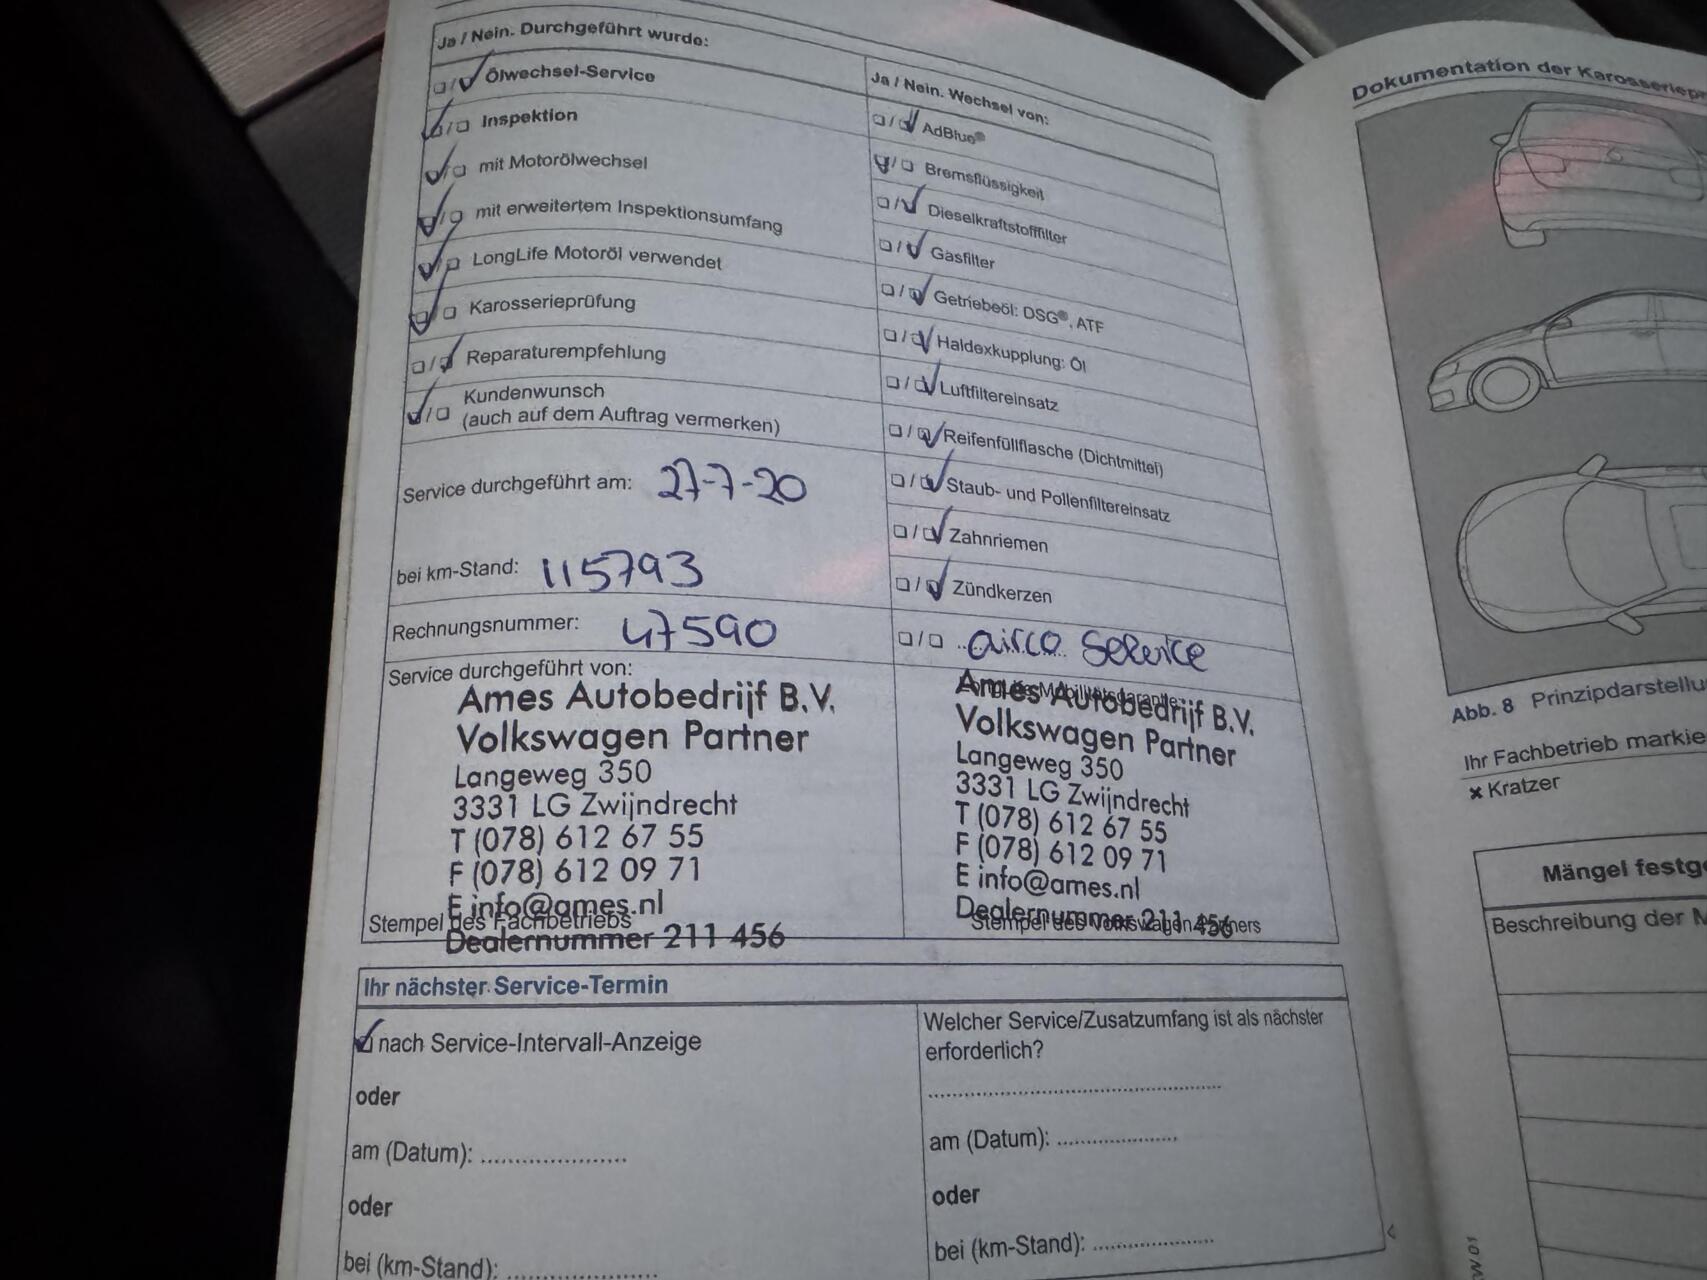 Ja / Nein. Durchgeführt wurde:
Ölwechsel-Service
Inspektion
mit Motorölwechsel
mit erweitertem Inspektionsumfang
LongLife Motoröl verwendet
Karosserieprüfung
Reparaturempfehlung
Kundenwunsch
(auch auf dem Auftrag vermerken)
Service durchgeführt am: 27-7-20
bei km-Stand: 115793
Rechnungsnummer: 47590
Service durchgeführt von:
Ames Autobedrijf B.V.
Volkswagen Partner
Langeweg 350
3331 LG Zwijndrecht
T (078) 612 67 55
F (078) 612 09 71
E info@ames.nl
Stempel des Fachbetriebs
Dealernummer 211 456
Ja / Nein. Wechsel von:
AdBlue®
Bremsflüssigkeit
Dieselkraftstofffilter
Gasfilter
Getriebeöl: DSG®, ATF
Haldexkupplung: Öl
Luftfiltereinsatz
Reifenfüllflasche (Dichtmittel)
Staub- und Pollenfiltereinsatz
Zahnriemen
Zündkerzen
airco service
Ames Autobedrijf B.V.
Volkswagen Partner
Langeweg 350
3331 LG Zwijndrecht
T (078) 612 67 55
F (078) 612 09 71
E info@ames.nl
Dealernummer 211 456
Stempel des Volkswagen Partners
Ihr nächster Service-Termin
nach Service-Intervall-Anzeige
oder
am (Datum): ......................
oder
bei (km-Stand): ......................
Welcher Service/Zusatzumfang ist als nächster
erforderlich?
am (Datum): ..................
oder
bei (km-Stand): ..................
Dokumentation der
Abb. 8 Prinzipdarstellu
Ihr Fachbetrieb markie
× Kratzer
Mängel festg
Beschreibung der M